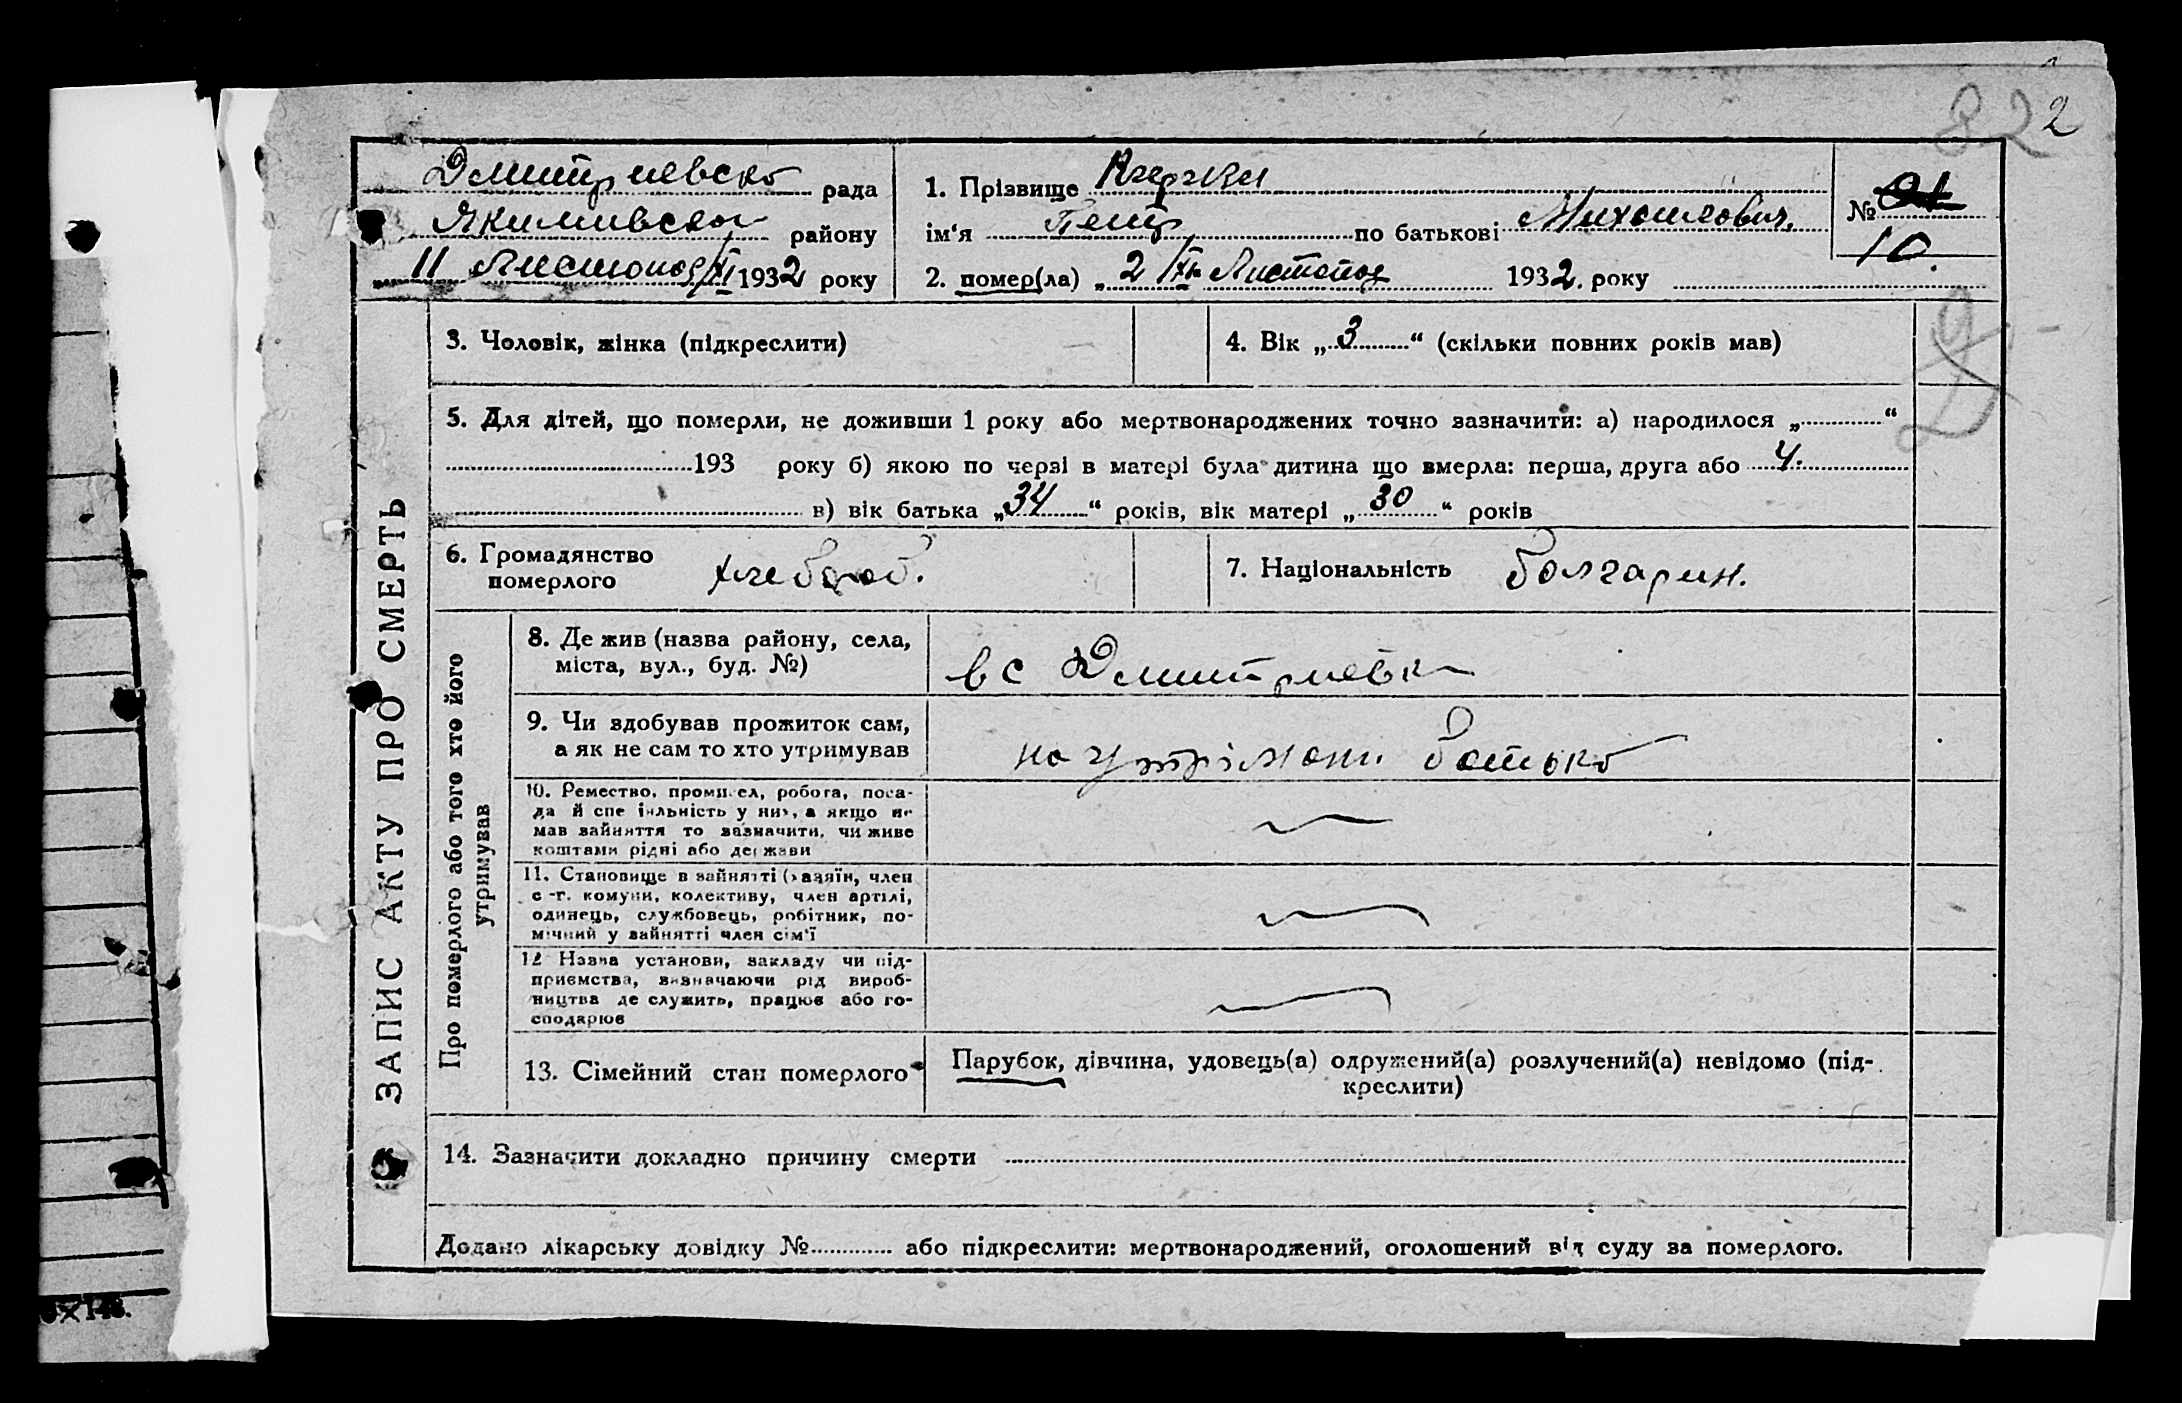 82 2
Дмитриевско рада
Якимивсько району
11 Листопад/XI 1932 року
1. Прізвище
ім‘я Петр по батькові Михаилович.
2. помер(ла) „ 2 /XI Листопад 1932. року
№
10.
ЗАПИС АКТУ ПРО СМЕРТЬ
3. Чоловік, жінка (підкреслити)
4. Вік „ 3 “ (скільки повних років мав)
5. Для дітей, що померли, не доживши 1 року або мертвонароджених точно зазначити: а) народилося „ “
193 року б) якою по черзі в матері була дитина що вмерла: перша, друга або 4.
в) вік батька „ 34 “ років, вік матері „ 30 “ років
6. Громадянство
померлого хлебороб.
7. Національність болгарин.
Про померлого або того хто його
утримував
8. Де жив (назва району, села,
міста, вул., буд. №)
в с Дмитриевка
9. Чи здобував прожиток сам,
а як не сам то хто утримував
на утрімани батько
10. Ремество, промисел, робота, поса-
да й спеціяльність у них, а якщо не
мав зайняття то зазначити, чи живе
коштами рідні або держави
11. Становище в зайнятті (хазяїн, член
с.-г. комуни, колективу, член артілі,
одинець, службовець, робітник, по-
мічний у зайнятті член сім‘ї
12 Назва установи, закладу чи під-
приємства, визначаючи рід вироб-
ництва де служить, працює або го-
сподарює
13. Сімейний стан померлого
Парубок, дівчина, удовець(а) одружений(а) розлучений(а) невідомо (під-
креслити)
14. Зазначити докладно причину смерти
Додано лікарську довідку № або підкреслити: мертвонароджений, оголошений від суду за померлого.